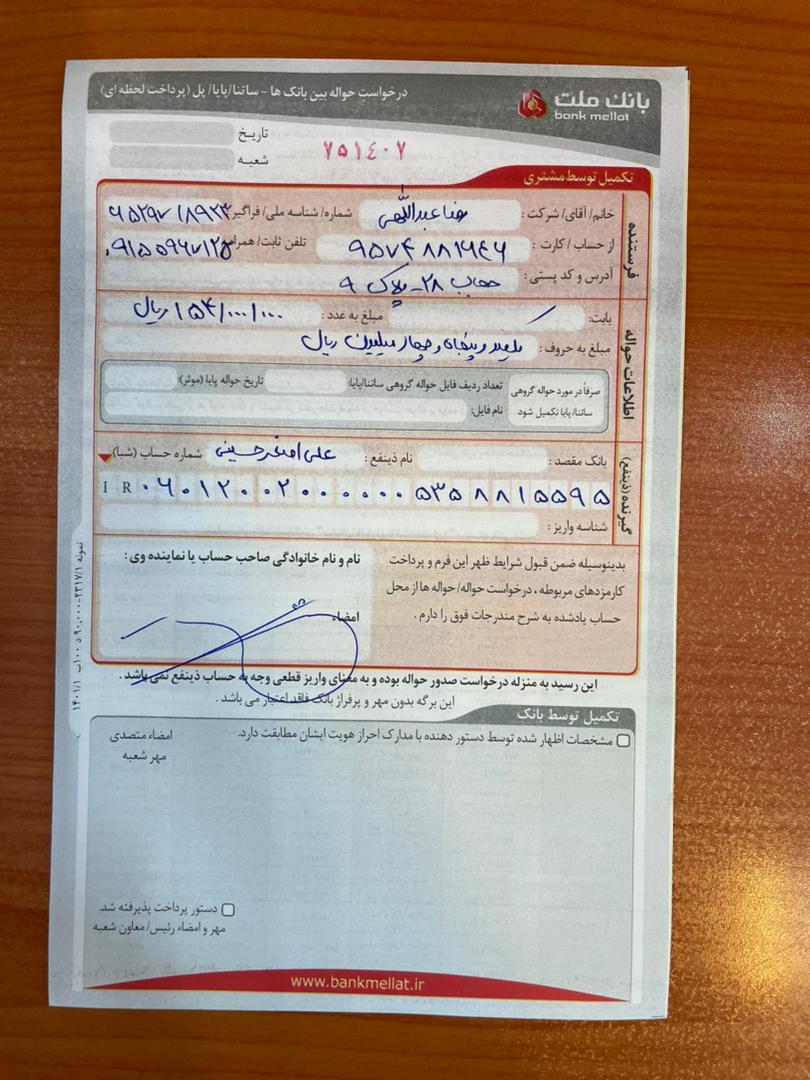 بانک ملت
bank mellat
درخواست حواله بین بانک ها - ساتنا/پایا/ پل (پرداخت لحظه ای)
تاریخ
شعبه
۷۵۱۴۰۷
تکمیل توسط مشتری
فرستنده
خانم/ آقای/ شرکت: عبداللهی شماره/ شناسه ملی/ فراگیر
از حساب / کارت: ۹۵۷۴۸۸۱۶۴۶ تلفن ثابت/ همراه: ۰۹۱۵۵۹۶۷۱۲۵
آدرس و کد پستی: ۲۸- پلاک ۹
اطلاعات حواله
بابت: مبلغ به عدد: ۱۵۴/۰۰۰/۰۰۰ ریال
مبلغ به حروف: یکصد و پنجاه و چهار میلیون ریال
صرفاً در مورد حواله گروهی ساتنا/ پایا تکمیل شود
تعداد ردیف فایل حواله گروهی ساتنا/پایا: تاریخ حواله پایا (موثر):
نام فایل:
گیرنده (ذینفع)
بانک مقصد: نام ذینفع: علی اصغر حسینی شماره حساب (شبا)
IR ۰۶۰۱۲۰۰۲۰۰۰۰۰۰۵۳۵۸۸۱۵۵۹۵
شناسه واریز:
بدینوسیله ضمن قبول شرایط ظهر این فرم و پرداخت
کارمزدهای مربوطه، درخواست حواله/ حواله ها از محل
حساب یادشده به شرح مندرجات فوق را دارم.
نام و نام خانوادگی صاحب حساب یا نماینده وی:
امضاء
این رسید به منزله درخواست صدور حواله بوده و به معنای واریز قطعی وجه به حساب ذینفع نمی باشد.
این برگه بدون مهر و پرفراژ بانک فاقد اعتبار می باشد.
تکمیل توسط بانک
مشخصات اظهار شده توسط دستور دهنده با مدارک احراز هویت ایشان مطابقت دارد.
امضاء متصدی
مهر شعبه
دستور پرداخت پذیرفته شد.
مهر و امضاء رئیس/ معاون شعبه
www.bankmellat.ir